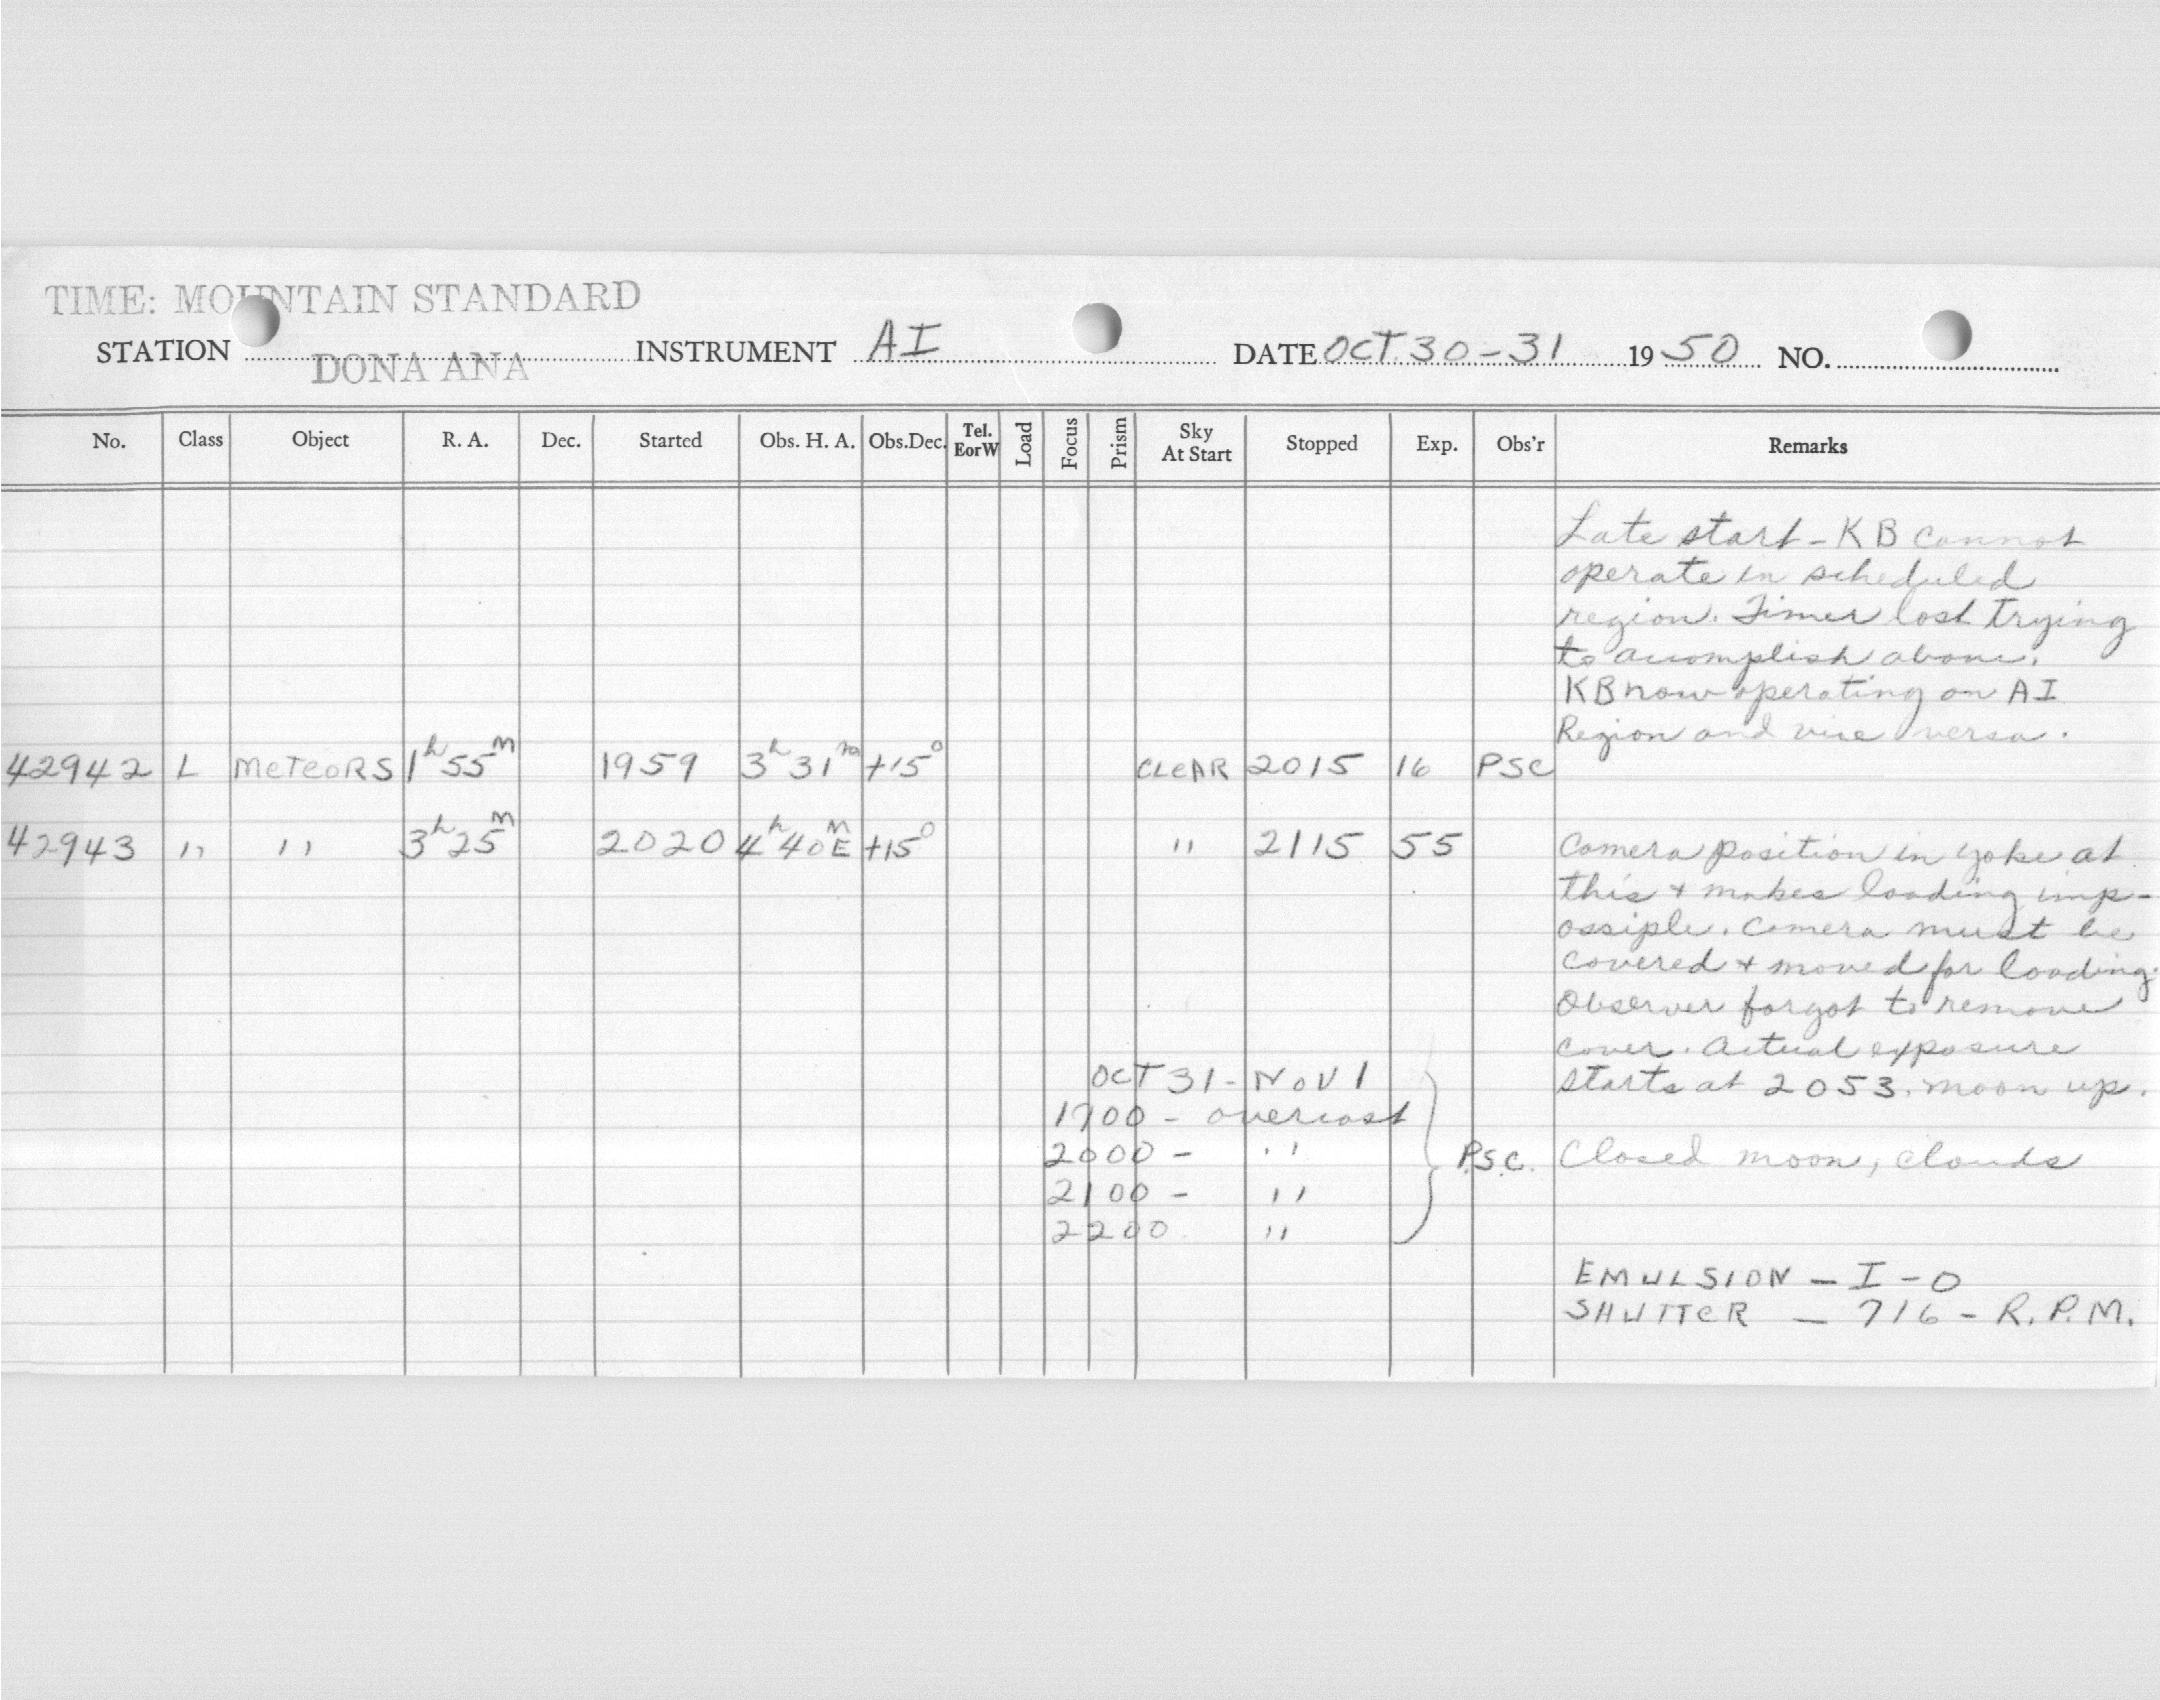 TIME: MOUNTAIN STANDARD
STATION DONA ANA INSTRUMENT AI DATE OCT. 30-31 1950 NO.
No. Class Object R. A. Dec. Started Obs. H. A. Obs.Dec. Tel. EorW Load Focus Prism Sky At Start Stopped Exp. Obs'r Remarks
Late start - KB cannot
operate in scheduled
region. Timer lost trying
to accomplish above.
KB now operating on AI
Region and vice versa.
42942 L METEORS 1h 55m 1959 3h 31m +15° CLEAR 2015 16 PSC
42943 '' '' 3h 25m 2020 4h 40m E +15° '' 2115 55 Camera position in yoke at
this + makes loading imp-
ossiple. Camera must be
covered + moved for loading.
Observer forgot to remove
cover. Actual exposure
OCT 31 - NOV 1 starts at 2053. moon up.
1900 - overcast
2000 - '' P.S.C. Closed moon, clouds
2100 - ''
2200 ''
EMULSION - I - O
SHUTTER - 716 - R.P.M.